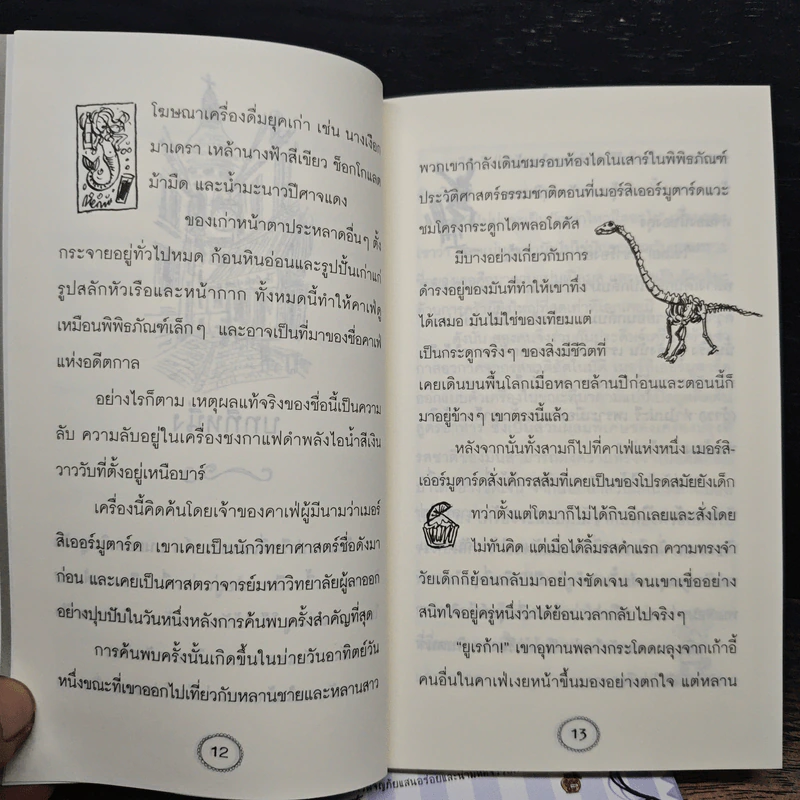 โฆษณาเครื่องดื่มยุคเก่า เช่น นางเงือก
มาเดรา เหล้านางฟ้าสีเขียว ช็อกโกแลต
ม้ามืด และน้ำมะนาวปีศาจแดง
ของเก่าหน้าตาประหลาดอื่นๆ ตั้ง
กระจายอยู่ทั่วไปหมด ก้อนหินอ่อนและรูปปั้นเก่าแก่
รูปสลักหัวเรือและหน้ากาก ทั้งหมดนี้ทำให้คาเฟ่ดู
เหมือนพิพิธภัณฑ์เล็กๆ และอาจเป็นที่มาของชื่อคาเฟ่
แห่งอดีตกาล
อย่างไรก็ตาม เหตุผลแท้จริงของชื่อนี้เป็นความ
ลับ ความลับอยู่ในเครื่องชงกาแฟดำพลังไอน้ำสีเงิน
วาววับที่ตั้งอยู่เหนือบาร์
เครื่องนี้คิดค้นโดยเจ้าของคาเฟ่ผู้มีนามว่าเมอร์
สิเออร์มูตาร์ด เขาเคยเป็นนักวิทยาศาสตร์ชื่อดังมา
ก่อน และเคยเป็นศาสตราจารย์มหาวิทยาลัยผู้ลาออก
อย่างปุบปับในวันหนึ่งหลังการค้นพบครั้งสำคัญที่สุด
การค้นพบครั้งนั้นเกิดขึ้นในบ่ายวันอาทิตย์วัน
หนึ่งขณะที่เขาออกไปเที่ยวกับหลานชายและหลานสาว
12
พวกเขากำลังเดินชมรอบห้องไดโนเสาร์ในพิพิธภัณฑ์
ประวัติศาสตร์ธรรมชาติตอนที่เมอร์สิเออร์มูตาร์ดแวะ
ชมโครงกระดูกไดพลอโดคัส
มีบางอย่างเกี่ยวกับการ
ดำรงอยู่ของมันที่ทำให้เขาทึ่ง
ได้เสมอ มันไม่ใช่ของเทียมแต่
เป็นกระดูกจริงๆ ของสิ่งมีชีวิตที่
เคยเดินบนพื้นโลกเมื่อหลายล้านปีก่อนและตอนนี้ก็
มาอยู่ข้างๆ เขาตรงนี้แล้ว
หลังจากนั้นทั้งสามก็ไปที่คาเฟ่แห่งหนึ่ง เมอร์สิ-
เออร์มูตาร์ดสั่งเค้กรสส้มที่เคยเป็นของโปรดสมัยยังเด็ก
ทว่าตั้งแต่โตมาก็ไม่ได้กินอีกเลยและสั่งโดย
ไม่ทันคิด แต่เมื่อได้ลิ้มรสคำแรก ความทรงจำ
วัยเด็กก็ย้อนกลับมาอย่างชัดเจน จนเขาเชื่ออย่าง
สนิทใจอยู่ครู่หนึ่งว่าได้ย้อนเวลากลับไปจริงๆ
"ยูเรก้า!" เขาอุทานพลางกระโดดผลุงจากเก้าอี้
คนอื่นในคาเฟ่เงยหน้าขึ้นมองอย่างตกใจ แต่หลาน
13